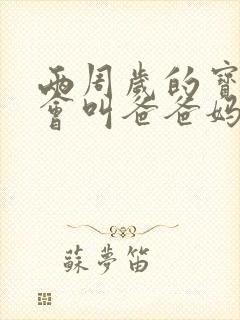 兩周歲的寶
會叫爸爸媽
蘇夢笛